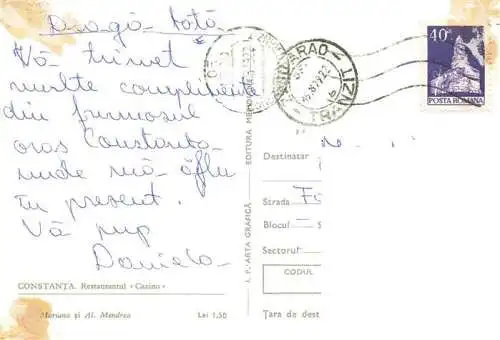 Dragă tată
Vă trimet
multe complimente
din frumosul
oraș Constanța
unde mă aflu
în prezent.
Vă pup
Daniela
CONSTANȚA. Restaurantul «Cazino»
Mariana și Al. Mendrea
Lei 1,50
I. P. „ARTA GRAFICĂ
EDITURA
ARAD
TRANZIT
40
POSTA ROMANA
Destinatar
Strada
Blocul
Sectorul
CODUL
Țara de dest